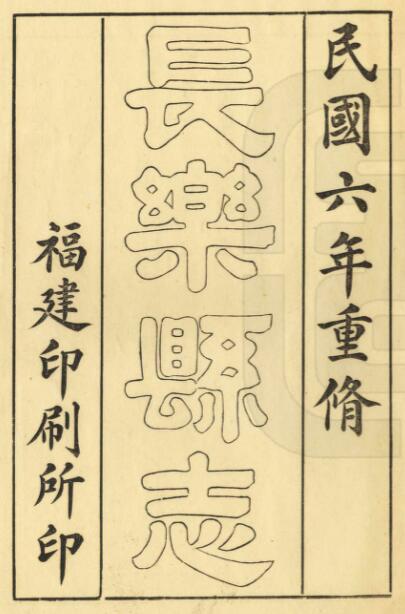 民國六年重脩
長樂縣志
福建印刷所印